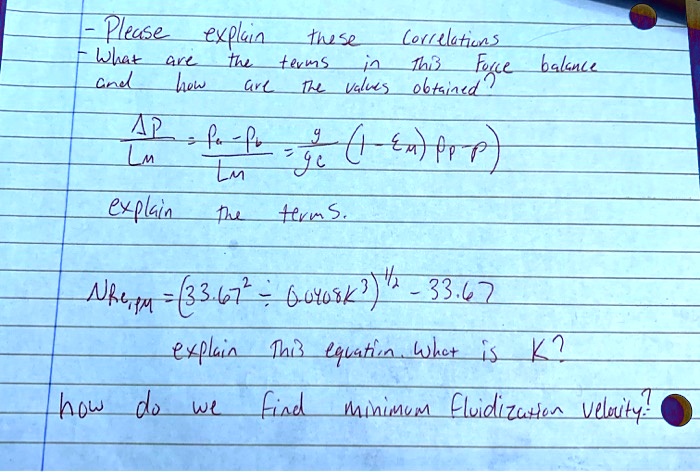 - Please explain these Correlations
- What are the terms in this Force balance
and how are the values obtained?
ΔP / LM = Pa - Pb / LM = g / gc (1 - εM) ρp - ρ)
explain the terms.
NRe,PM = (33.67² ÷ 0.0408K³)^1/2 - 33.67
explain this equation. What is K?
how do we find minimum fluidization velocity?